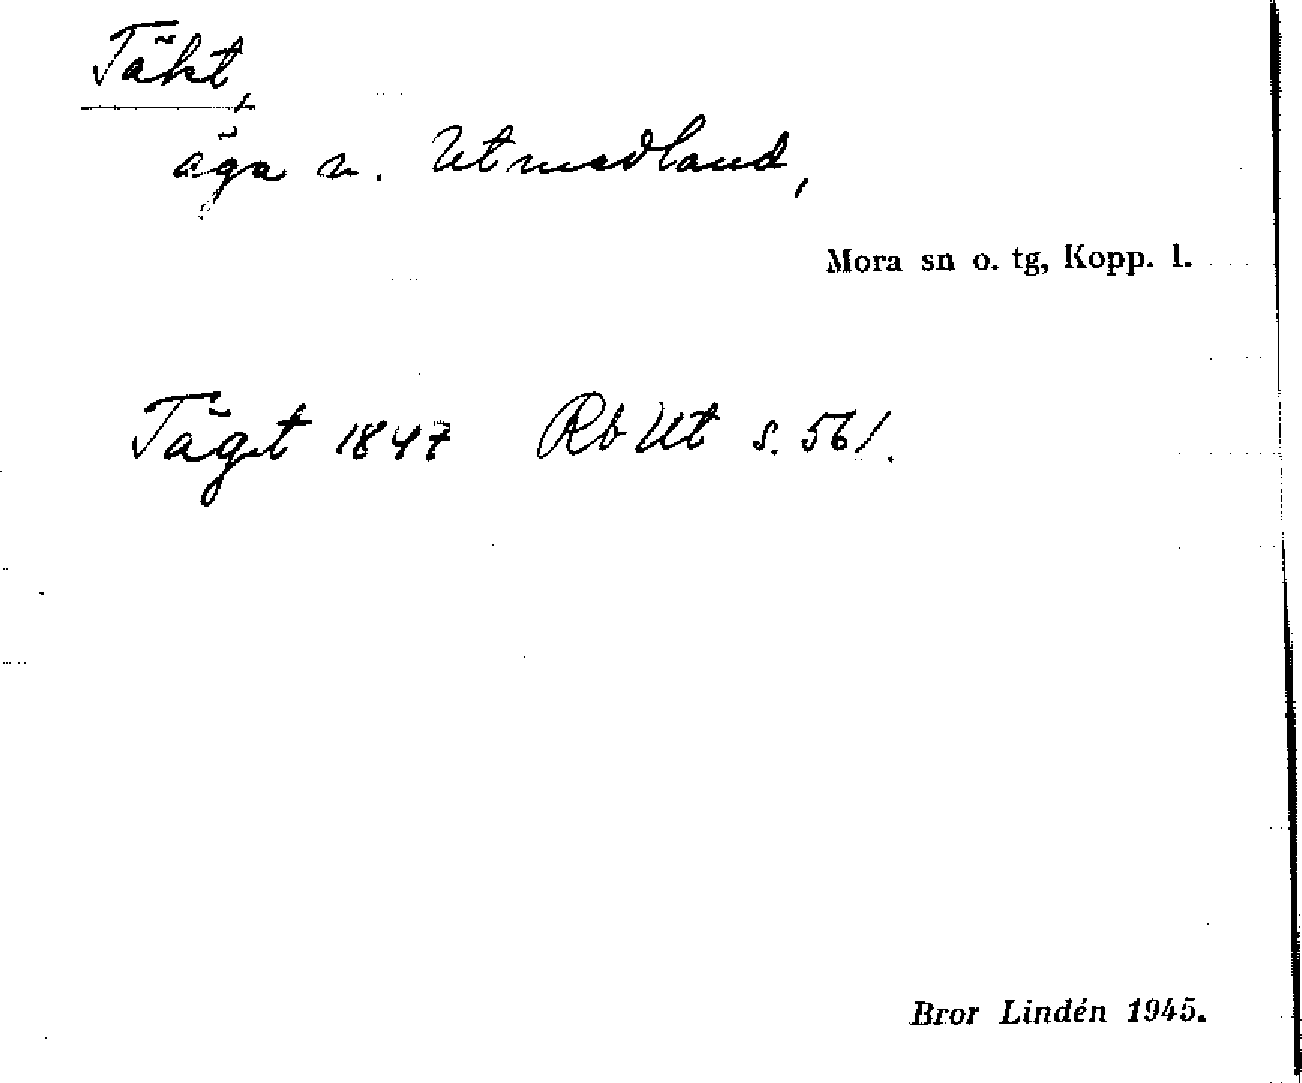 Täkt,
äga v. Utmedland,
Mora sn o. tg, Kopp. l.
Tägt 1847 Rb Ut s. 561.
Bror Lindén 1945.